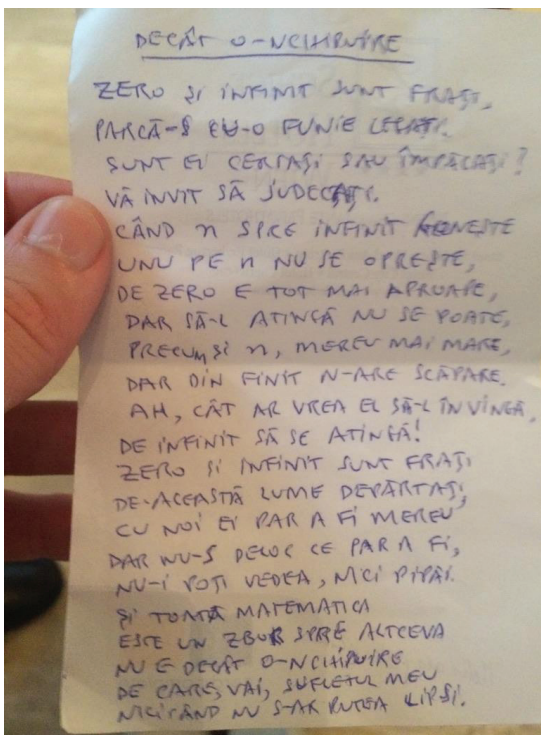 DECÂT O-NCHIPUIRE
ZERO ȘI INFINIT SUNT FRAȚI,
PARCĂ-S CU-O FUNIE LEGAȚI.
SUNT EI CERTAȚI SAU ÎMPĂCAȚI?
VĂ INVIT SĂ JUDECAȚI.
CÂND n SPRE INFINIT GONEȘTE
UNU PE n NU SE OPREȘTE,
DE ZERO E TOT MAI APROAPE,
DAR SĂ-L ATINGĂ NU SE POATE,
PRECUM ȘI n, MEREU MAI MARE,
DAR DIN FINIT N-ARE SCĂPARE.
AH, CÂT AR VREA EL SĂ-L ÎNVINGĂ,
DE INFINIT SĂ SE ATINGĂ!
ZERO SI INFINIT SUNT FRAȚI
DE-ACEASTĂ LUME DEPĂRTAȚI,
CU NOI EI PAR A FI MEREU
DAR NU-S DELOC CE PAR A FI,
NU-I POȚI VEDEA, NICI PIPĂI.
ȘI TOATĂ MATEMATICA
ESTE UN ZBOR SPRE ALTCEVA
NU E DECÂT O-NCHIPUIRE
DE CARE, VAI, SUFLETUL MEU
NICICÂND NU S-AR PUTEA LIPSI.